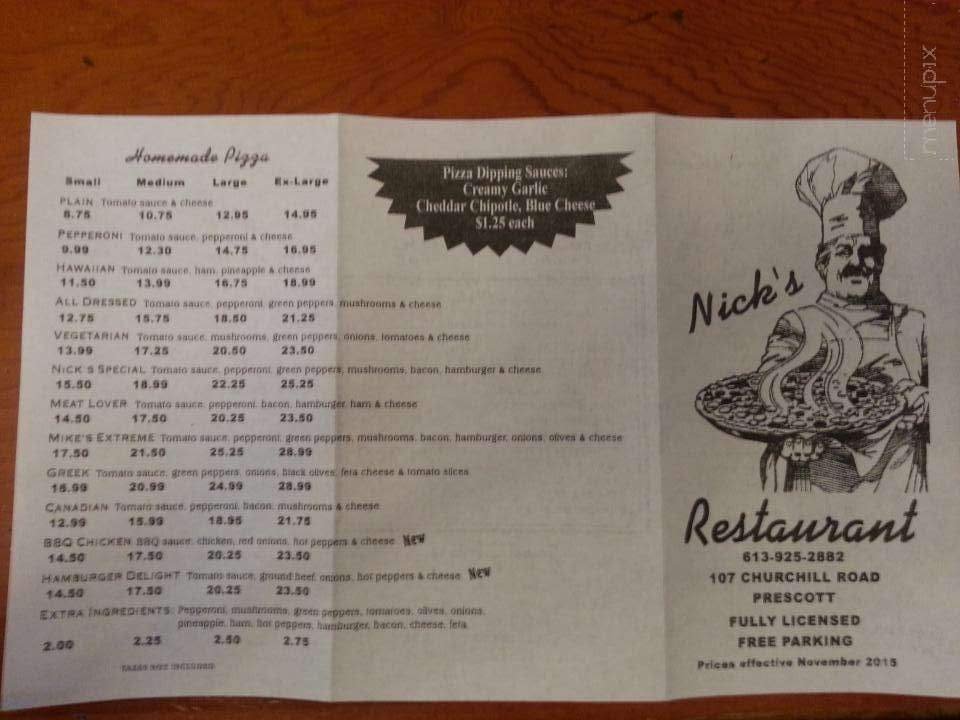 Homemade Pizza
Small Medium Large Ex-Large
PLAIN Tomato sauce & cheese
8.75 10.75 12.95 14.95
PEPPERONI Tomato sauce, pepperoni & cheese
9.99 12.30 14.75 16.95
HAWAIIAN Tomato sauce, ham, pineapple & cheese
11.50 13.99 16.75 18.99
ALL DRESSED Tomato sauce, pepperoni, green peppers, mushrooms & cheese
12.75 15.75 18.50 21.25
VEGETARIAN Tomato sauce, mushrooms, green peppers, onions, tomatoes & cheese
13.99 17.25 20.50 23.50
NICK'S SPECIAL Tomato sauce, pepperoni, green peppers, mushrooms, bacon, hamburger & cheese
15.50 18.99 22.25 25.25
MEAT LOVER Tomato sauce, pepperoni, bacon, hamburger, ham & cheese
14.50 17.50 20.25 23.50
MIKE'S EXTREME Tomato sauce, pepperoni, green peppers, mushrooms, bacon, hamburger, onions, olives & cheese
17.50 21.50 25.25 28.99
GREEK Tomato sauce, green peppers, onions, black olives, feta cheese & tomato slices
20.99 24.99 28.99
CANADIAN Tomato sauce, pepperoni, bacon, mushrooms & cheese
12.99 15.99 18.95 21.75
BBQ CHICKEN BBQ sauce, chicken, red onions, hot peppers & cheese New
14.50 17.50 20.25 23.50
HAMBURGER DELIGHT Tomato sauce, ground beef, onions, hot peppers & cheese New
14.50 17.50 20.25 23.50
EXTRA INGREDIENTS: Pepperoni, mushrooms, green peppers, tomatoes, olives, onions,
pineapple, ham, hot peppers, hamburger, bacon, cheese, feta
2.00 2.25 2.50 2.75
TAXES NOT INCLUDED
Pizza Dipping Sauces:
Creamy Garlic
Cheddar Chipotle, Blue Cheese
$1.25 each
Nick's
Restaurant
613-925-2882
107 CHURCHILL ROAD
PRESCOTT
FULLY LICENSED
FREE PARKING
Prices effective November 2015
menupix